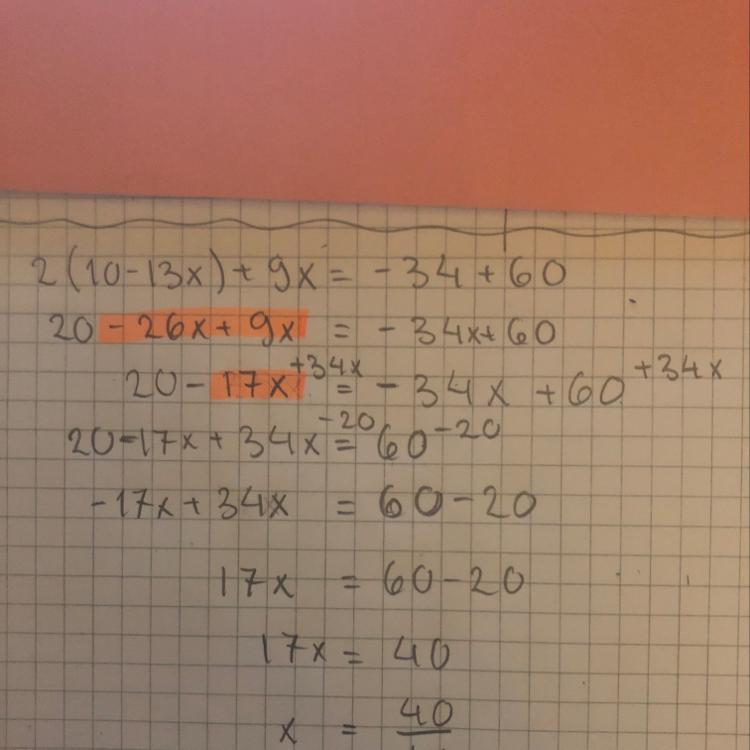 2(10-13x)+9x = -34+60
20-26x+9x = -34x+60
20-17x+34x = -34x+60+34x
20-17x+34x-20 = 60-20
-17x+34x = 60-20
17x = 60-20
17x = 40
x = 40